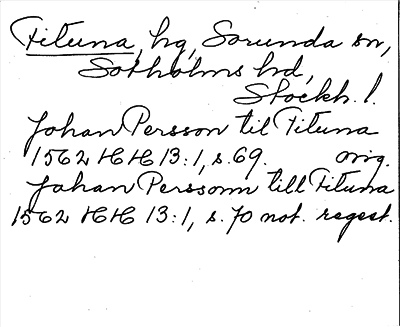 Fituna, hg, Sorunda sn,
Sotholms hd,
Stockh. l.
Johan Persson til Fituna
1562 HH 13:1, s. 69. orig.
Johan Perssonn till Fituna
1562 HH 13:1, s. 70 not. regest.